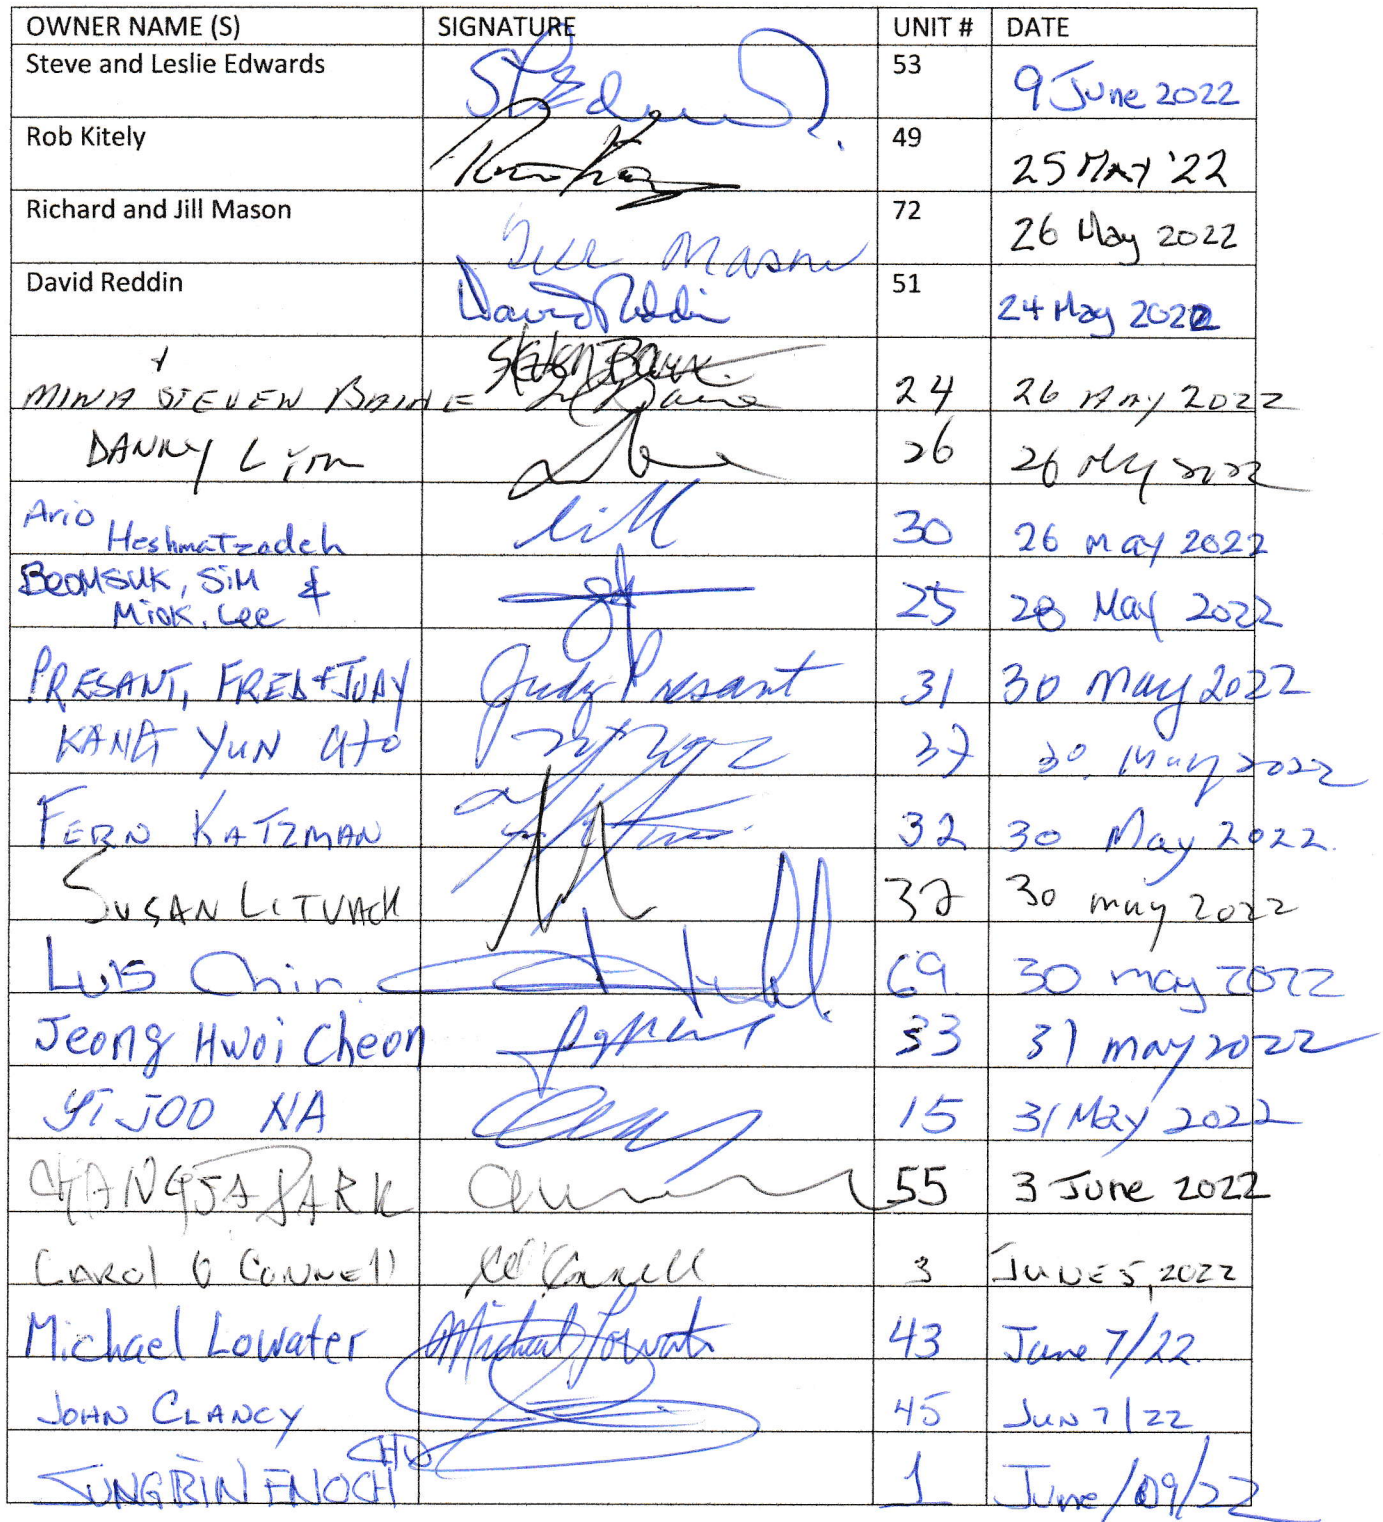 OWNER NAME (S) SIGNATURE UNIT # DATE
Steve and Leslie Edwards 53 9 June 2022
Rob Kitely 49 25 MAY '22
Richard and Jill Mason Jill Mason 72 26 May 2022
David Reddin David Reddin 51 24 May 2022
+
MINA STEVEN BAINE 24 26 MAY 2022
DANNY Lyon 26 26 May 2022
Ario
Heshmatzadeh 30 26 may 2022
BEOMSUK, SIM &
MiOK, Lee 25 28 May 2022
PRESANT, FRED + JUDY Judy Presant 31 30 May 2022
KANG YUN 37 30 May 2022
FERN KATZMAN 32 30 May 2022.
SUSAN LITVACK 37 30 may 2022
Luis Chin 69 30 may 2022
Jeong Hwoi Cheon 33 31 may 2022
YI JOO NA 15 31 May 2022
PARK 55 3 June 2022
CAROl O CONNEll 3 JUNE 5, 2022
Michael Lowater Michael Lowater 43 June 7/22.
JOHN CLANCY 45 JUN 7/22
SUNGBIN ENOCH 1 June/09/22